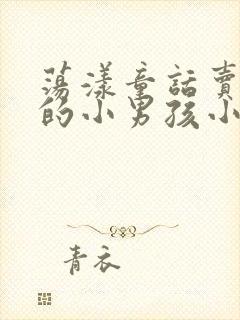 蕩漾童話賣
的小男孩小
青衣